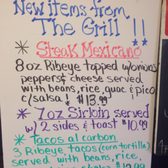 New items from
The Grill !!
* Steak Mexicano
8oz Ribeye topped w/onions
peppers & cheese served
with beans, rice, guac & pico
c/salsa & $13.99
* 7oz Sirloin served
w/ 2 sides & toast $10.99
* Tacos al carbon
3 Ribeye tacos (corn tortilla)
served with beans, rice,